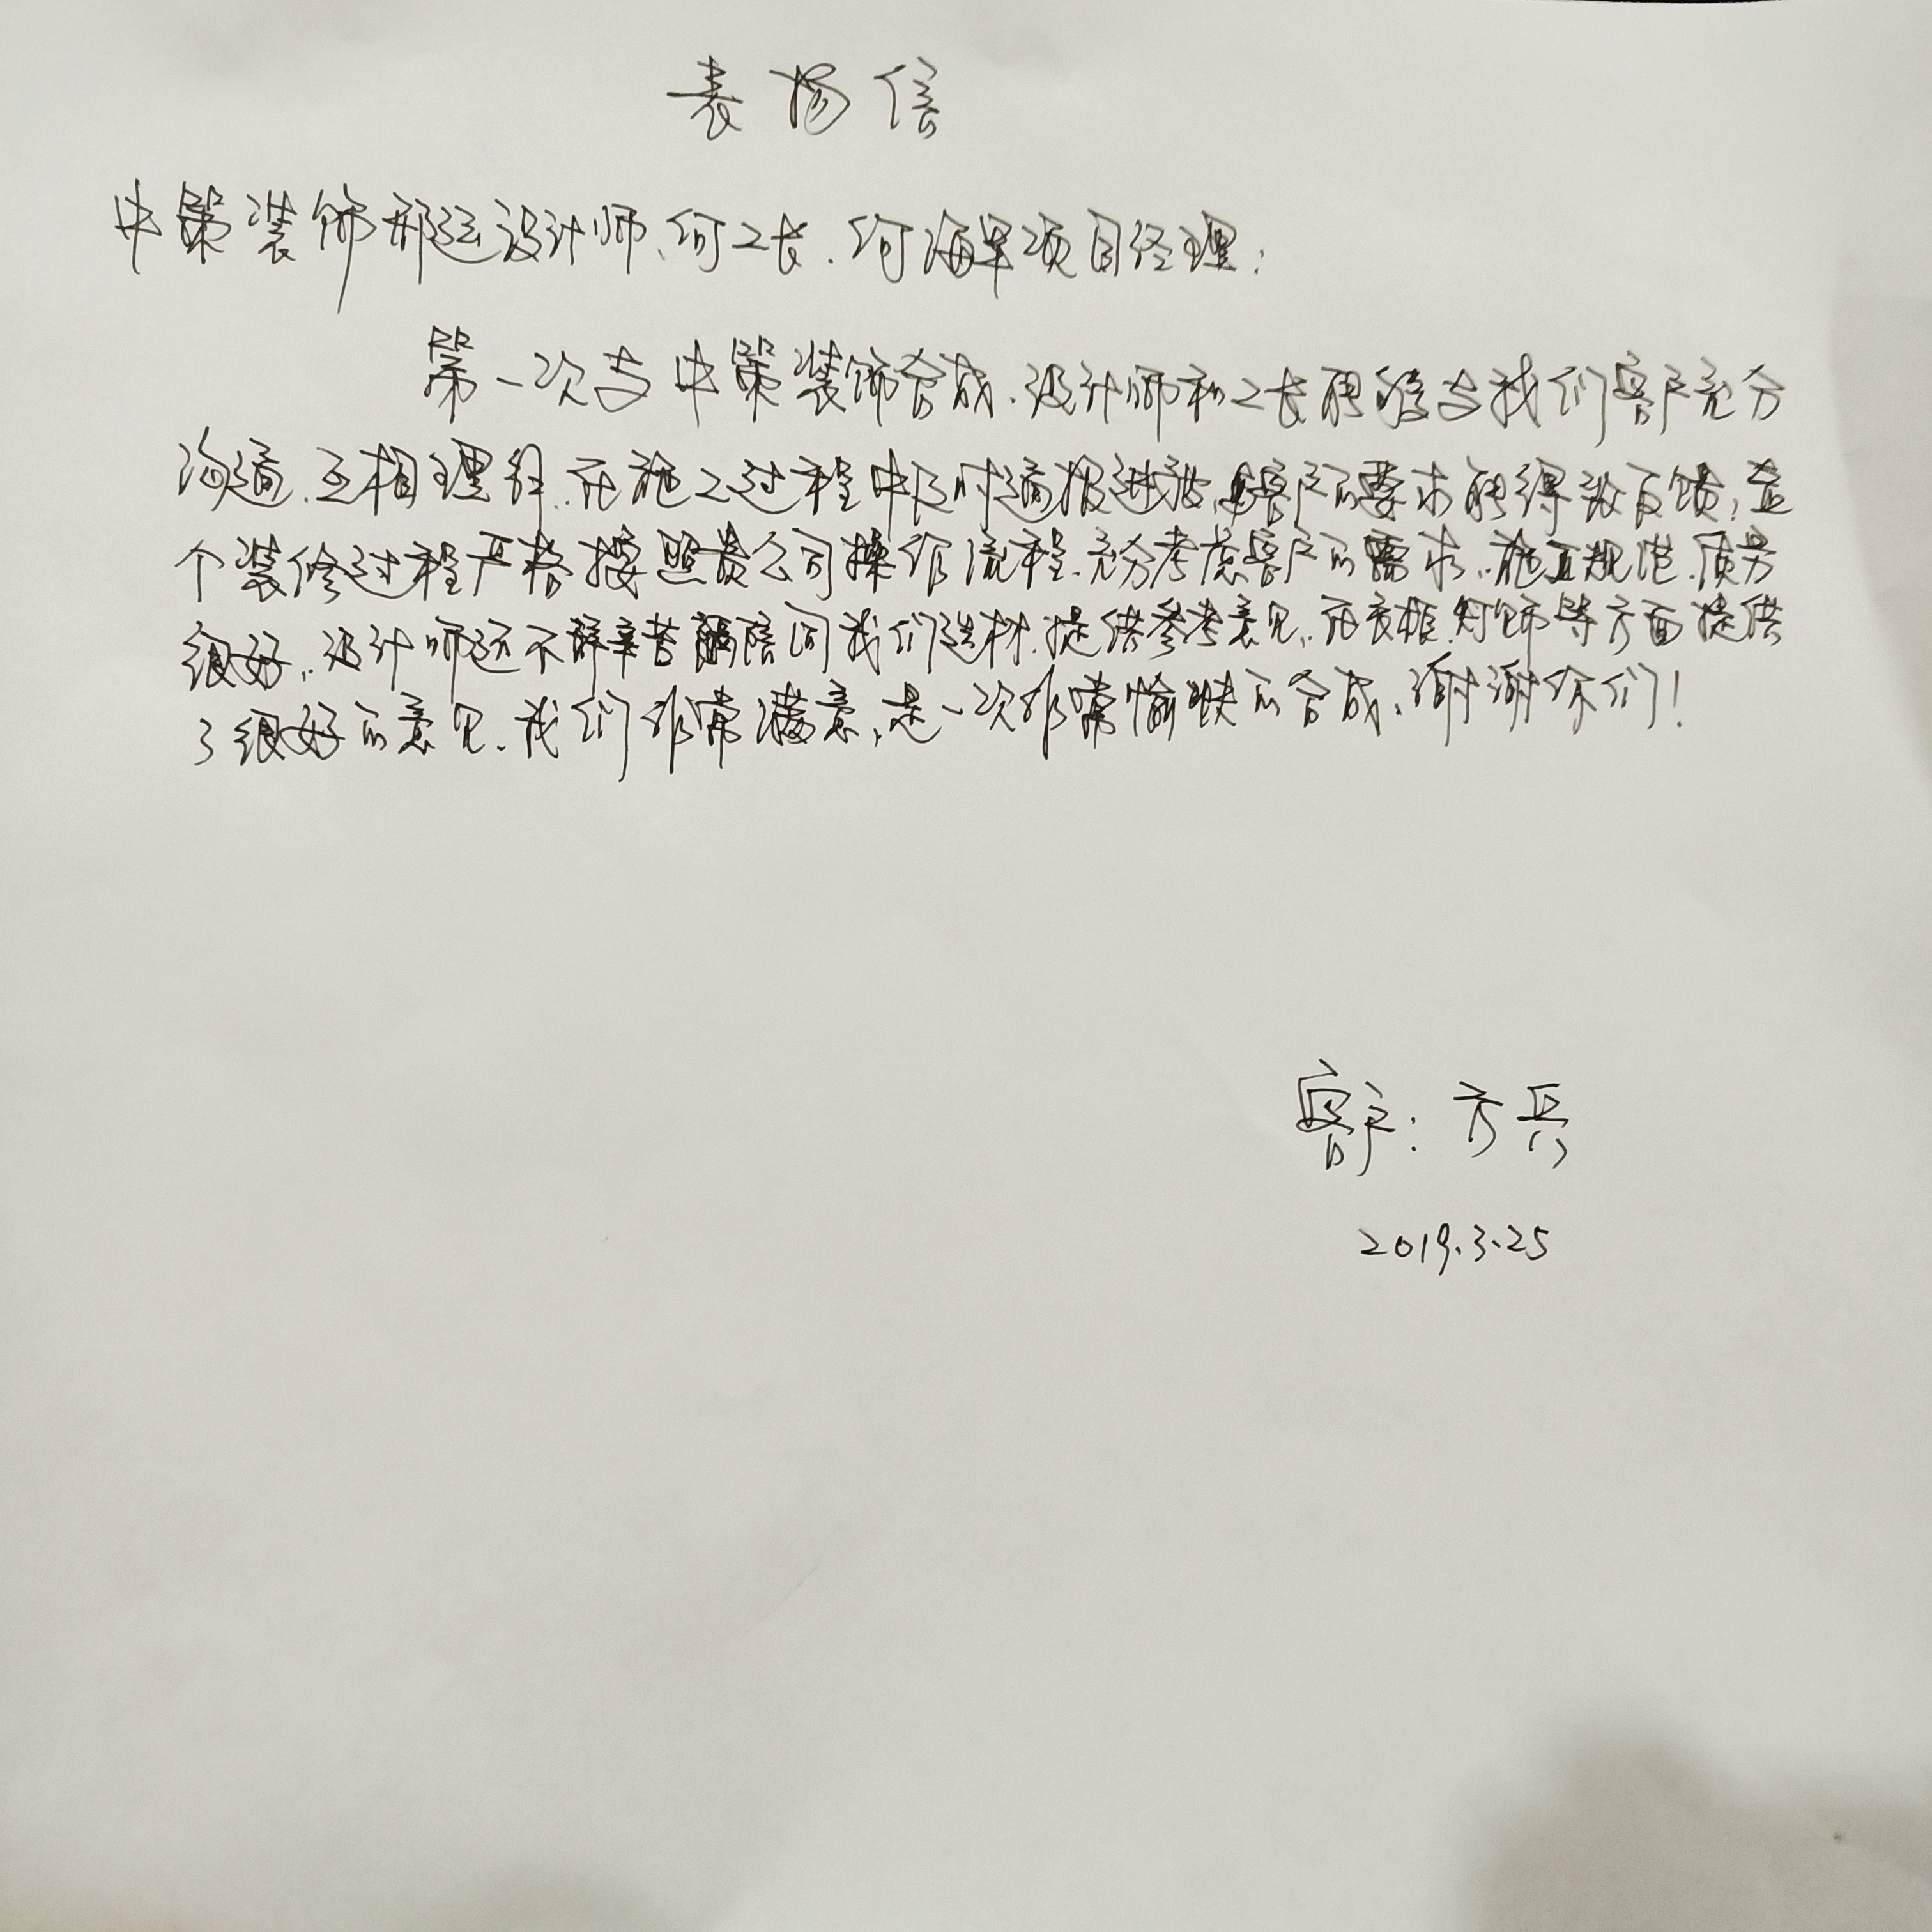 表扬信
中策装饰邢运设计师、何工长、何海军项目经理：
第一次与中策装饰合成，设计师和工长能够与我们客户充分
沟通，互相理解，在施工过程中及时通报进度，客户的要求能得到反馈，整
个装修过程严格按照贵公司操作流程，充分考虑客户的需求，施工规范，质量
很好，设计师还不辞辛苦陪同我们选材，提供参考意见，在衣柜、灯饰等方面提供
了很好的意见，我们非常满意，是一次非常愉快的合成，谢谢你们！
客户：方兵
2019.3.25